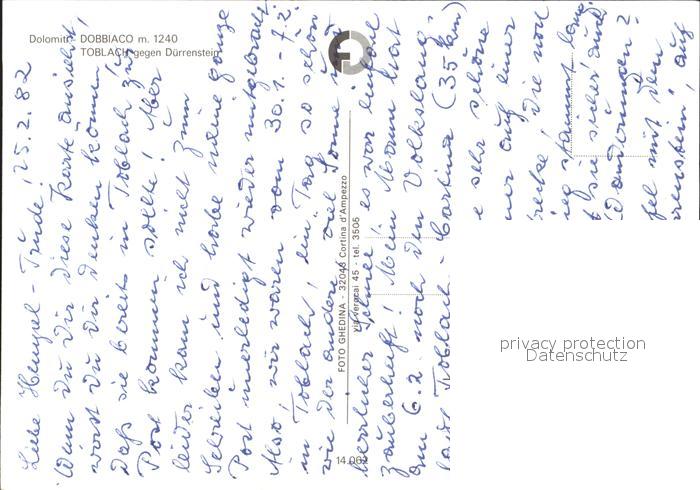 Dolomiti - DOBBIACO m. 1240
TOBLACH gegen Dürrenstein
25.2.82
Liebe Trude!
Wenn Du Dir diese Karte ansiehst,
wirst Du Dir denken können,
daß sie bereits in Toblach zur
Post kommen sollte! Aber
leider kam ich nicht zum
Schreiben und habe meine ganze
Post unerledigt wieder mitgebracht!
Also, wir waren vom 30.1. - 7.2.
in Toblach, ein Tag so schön
wie der andere, viel Sonne und
herrlicher Schnee! es war einfach
zauberhaft! Mein Mann hat
am 6.2. noch den Volkslang-
lauf Toblach - Cortina (35 km)
e sehr schöne
ner auf einer
recke, die von
t sie sicher auch
Wandermann?
fel mit dem
renstein, auf
FOTO GHEDINA - 32043 Cortina d'Ampezzo
via Verocai 45 - tel. 3505
14.062
privacy protection
Datenschutz